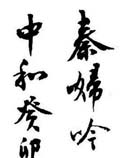 秦婦吟
中和癸卯